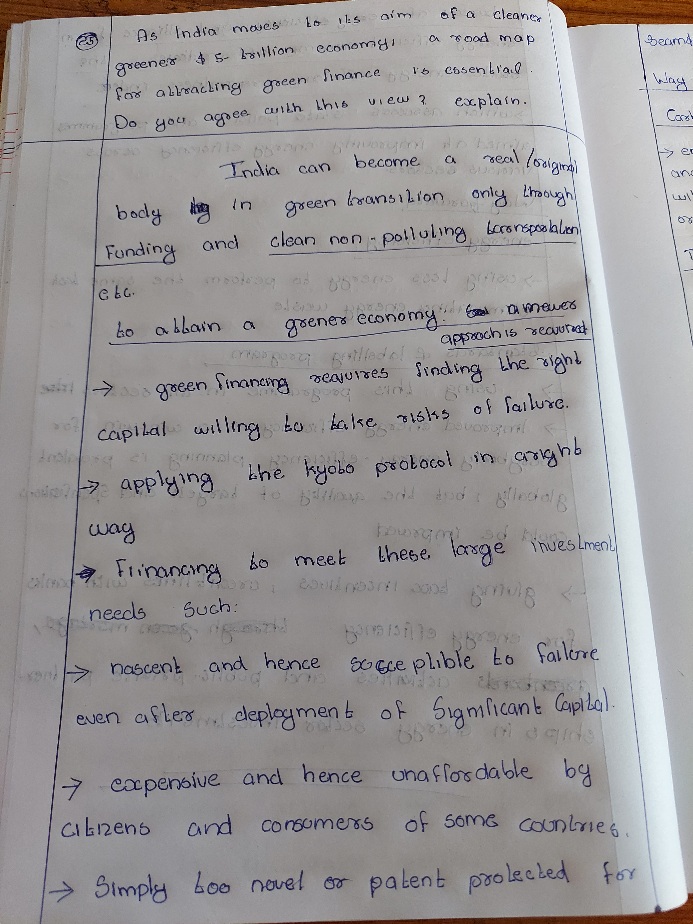 25 As India moves to its aim of a cleaner
greener $ 5- trillion economy, a road map
for attracting green finance is essential.
Do you agree with this view? explain.
India can become a real/original
body in green transition only through
Funding and clean non-polluting transpotation
etc.
to attain a grener economy. a newer
approch is required
→ green financing requires finding the right
capital willing to take risks of failure.
→ applying the kyoto protocol in a right
way
→ Fiinancing to meet these large investment
needs such:
→ nascent and hence susceptible to failure
even after deployment of Significant Capital.
→ expensive and hence unaffordable by
citizens and consumers of some countries.
→ Simply too novel or patent protected for
way